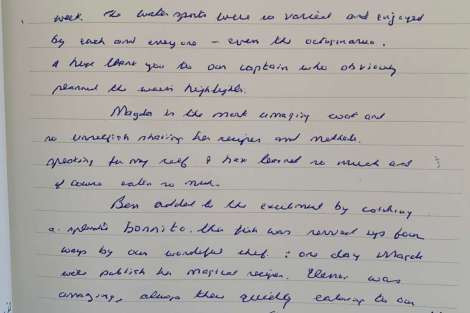 week. The watersports were so varied and enjoyed
by each and everyone – even the octogenarian.
A huge thank you to our captain who obviously
planned the weeks highlights.
Magda is the most amazing cook and
so unselfish sharing her recipes and methods.
speaking for my self I have learned so much and
of course eaten so much.
Ben added to the excitement by catching
a splendid bonnito. The fish was served up four
ways by our wonderful chef : one day Magda
will publish her magical recipes. was
amazing, always there quietly catering to our